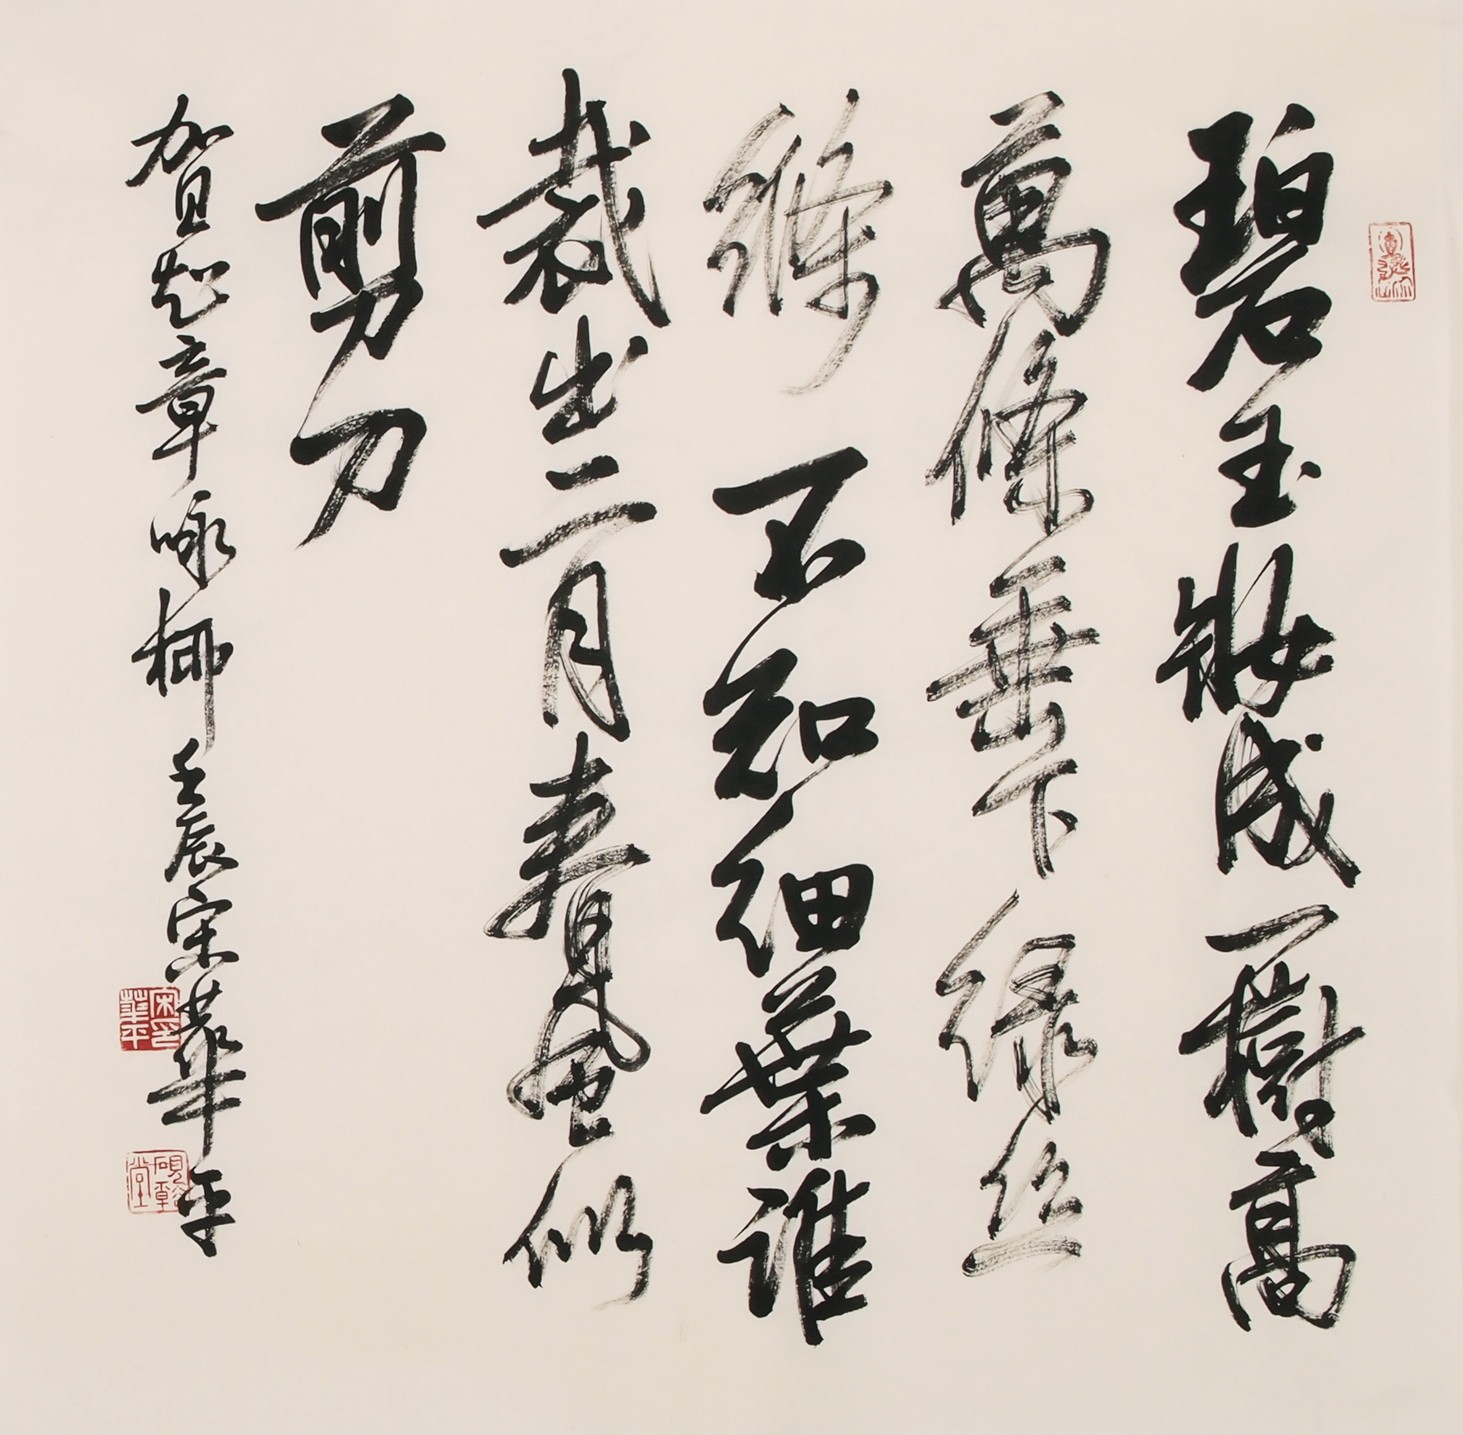 碧玉妝成一樹高
萬條垂下綠丝
絛不知細葉誰
裁出二月春風似
剪刀
賀知章咏柳壬辰宋華平
宋華平印
硯韜堂